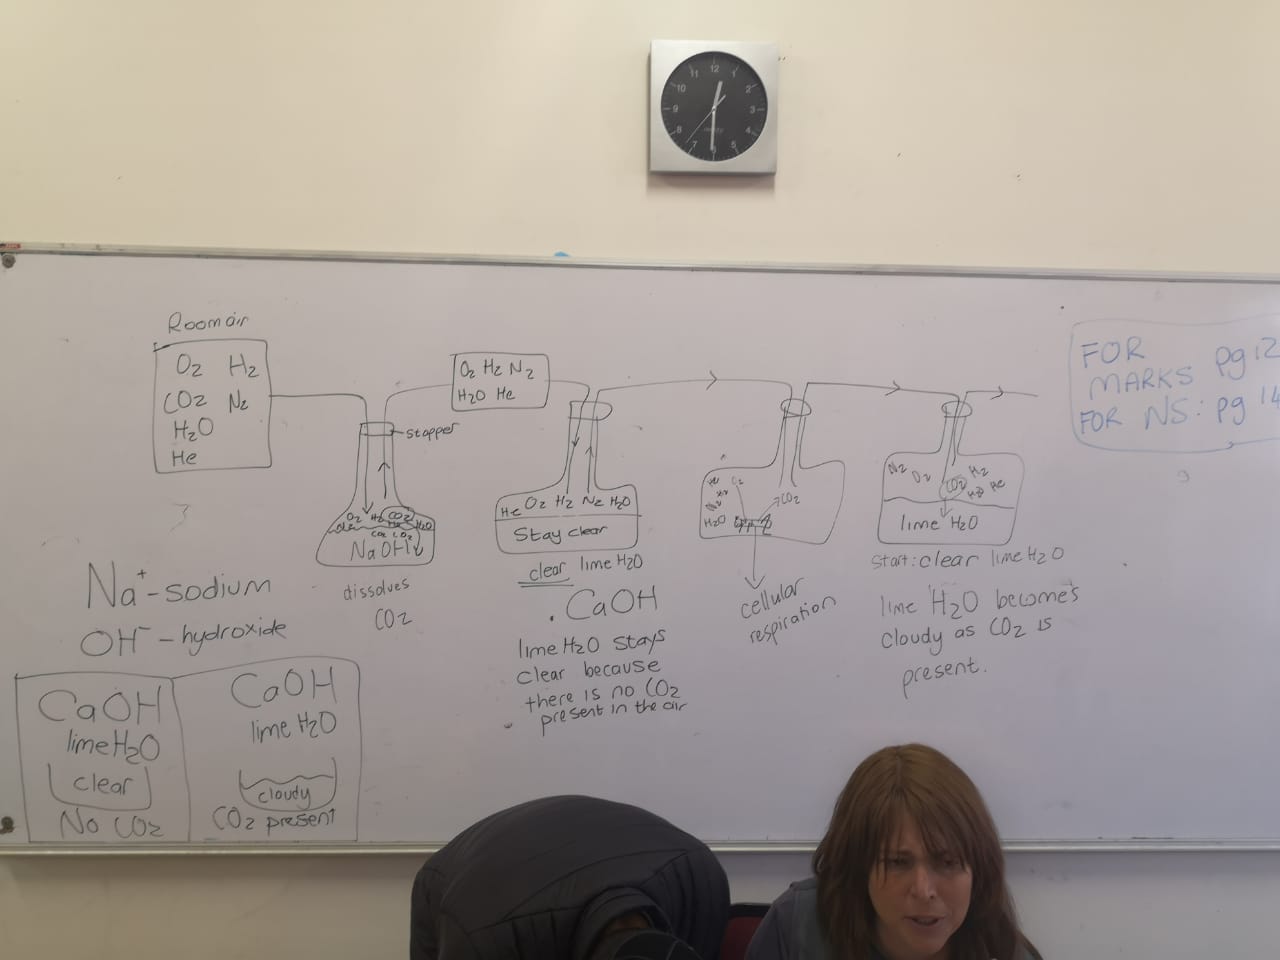 12
1
2
3
4
5
6
7
8
9
10
11
Room air
O2 H2
CO2 N2
H2O
He
stopper
O2 H2 CO2
H2O
CO2 CO2
NaOH
dissolves
CO2
O2 H2 N2
H2O He
He O2 H2 N2 H2O
Stay clear
clear lime H2O
. CaOH
lime H2O stays
clear because
there is no CO2
present in the air
He O2
N2
H2O
CO2
cellular
respiration
N2 O2 CO2 H2
H2O He
lime H2O
start: clear lime H2O
lime H2O becomes
cloudy as CO2 is
present.
FOR
MARKS pg 12
FOR NS: pg 14
Na+ - sodium
OH- - hydroxide
CaOH
lime H2O
clear
No CO2
CaOH
lime H2O
cloudy
CO2 present